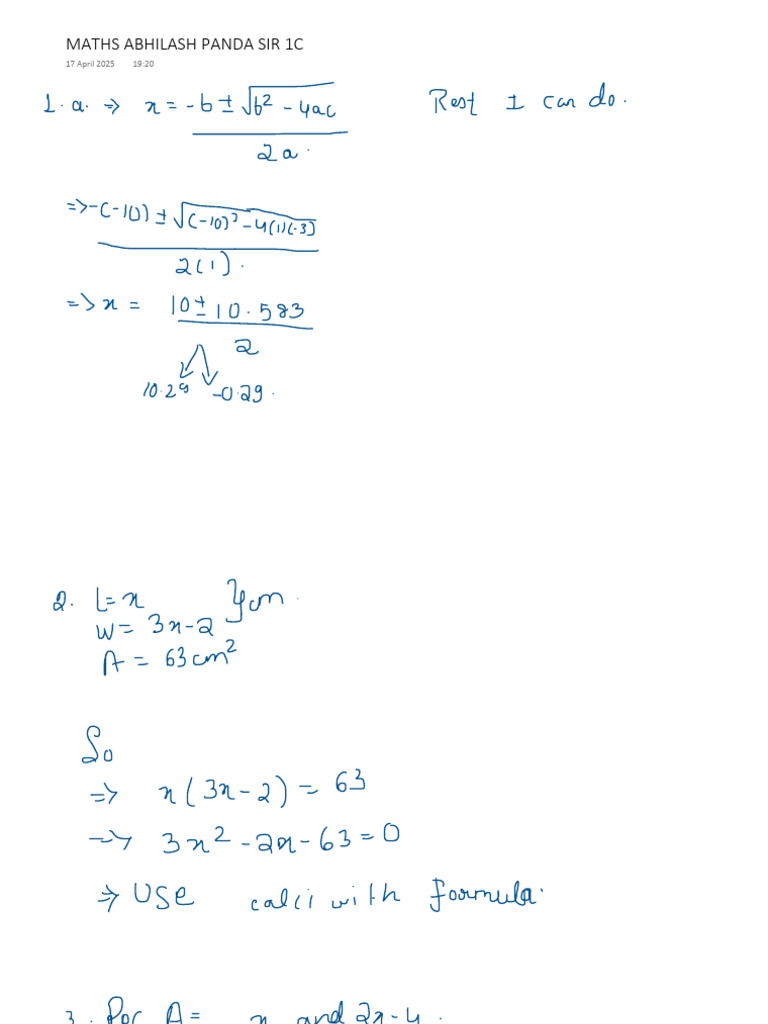 MATHS ABHILASH PANDA SIR 1C
17 April 2025 19:20
1. a. => x = -b ± √b² - 4ac Rest I can do.
2a.
=> -(-10) ± √(-10)² - 4(1)(-3)
2(1).
=> x = 10 ± 10.583
2
10.29 -0.29.
2. L = x } cm.
W = 3x - 2
A = 63 cm²
So
=> x(3x - 2) = 63
=> 3x² - 2x - 63 = 0
=> Use calci with formula.
3. For A = x and 2x - 4.